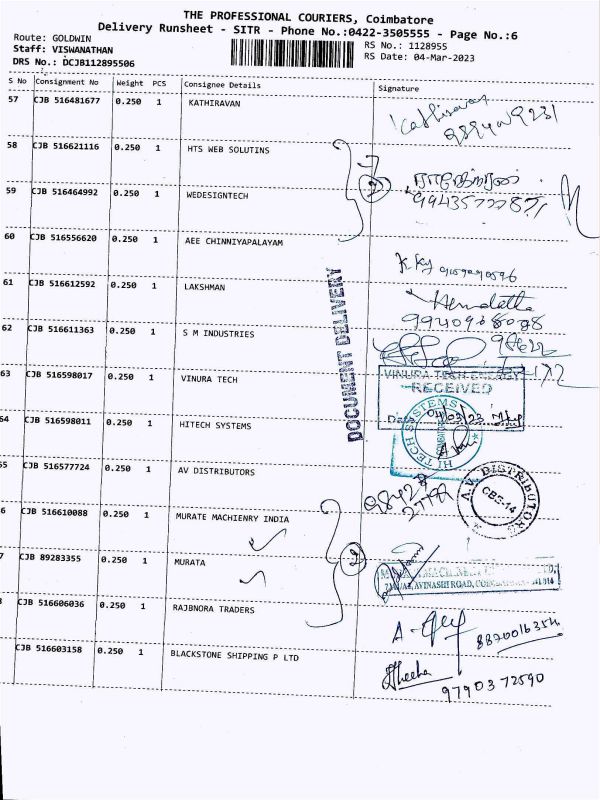 THE PROFESSIONAL COURIERS, Coimbatore
Delivery Runsheet - SITR - Phone No.:0422-3505555 - Page No.:6
Route: GOLDWIN
Staff: VISWANATHAN
DRS No.: DCJB112895506
RS No.: 1128955
RS Date: 04-Mar-2023
S No Consignment No Weight PCS Consignee Details Signature
57 CJB 516481677 0.250 1 KATHIRAVAN
58 CJB 516621116 0.250 1 HTS WEB SOLUTINS
59 CJB 516464992 0.250 1 WEDESIGNTECH
60 CJB 516556620 0.250 1 AEE CHINNIYAPALAYAM
61 CJB 516612592 0.250 1 LAKSHMAN
62 CJB 516611363 0.250 1 S M INDUSTRIES
63 CJB 516598017 0.250 1 VINURA TECH
64 CJB 516598011 0.250 1 HITECH SYSTEMS
65 CJB 516577724 0.250 1 AV DISTRIBUTORS
6 CJB 516610088 0.250 1 MURATE MACHIENRY INDIA
7 CJB 89283355 0.250 1 MURATA
CJB 516606036 0.250 1 RAJBNORA TRADERS
CJB 516603158 0.250 1 BLACKSTONE SHIPPING P LTD
DOCUMENT DELIVERY
Kathiravan
2
Hemalatha
9940968088
VINURA TECH ENERGY
RECEIVED
Date 04/03/23
HI TECH SYSTEMS
A.V. DISTRIBUTORS
CBE-14
2
AVINASHI ROAD,
8870016354
97903 72590